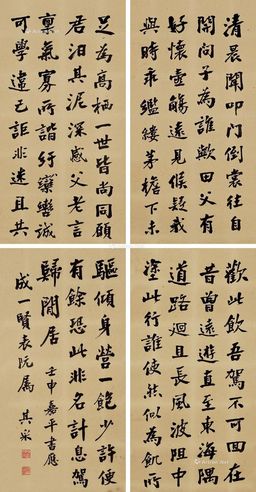 清晨聞叩門倒裳往自
開問子為誰歟田父有
好懷壺觴遠見候疑我
與時乖繿縷茅檐下未
足為高栖一世皆尚同願
君汩其泥深感父老言
稟氣寡所諧紆轡誠
可學違己詎非迷且共
歡此飲吾駕不可回在
昔曾遠遊直至東海隅
道路迴且長風波阻中
塗此行誰使然似為飢所
驅傾身營一飽少許便
有餘恐此非名計息駕
歸閒居 壬申嘉平書應
成一賢表阮属 其采